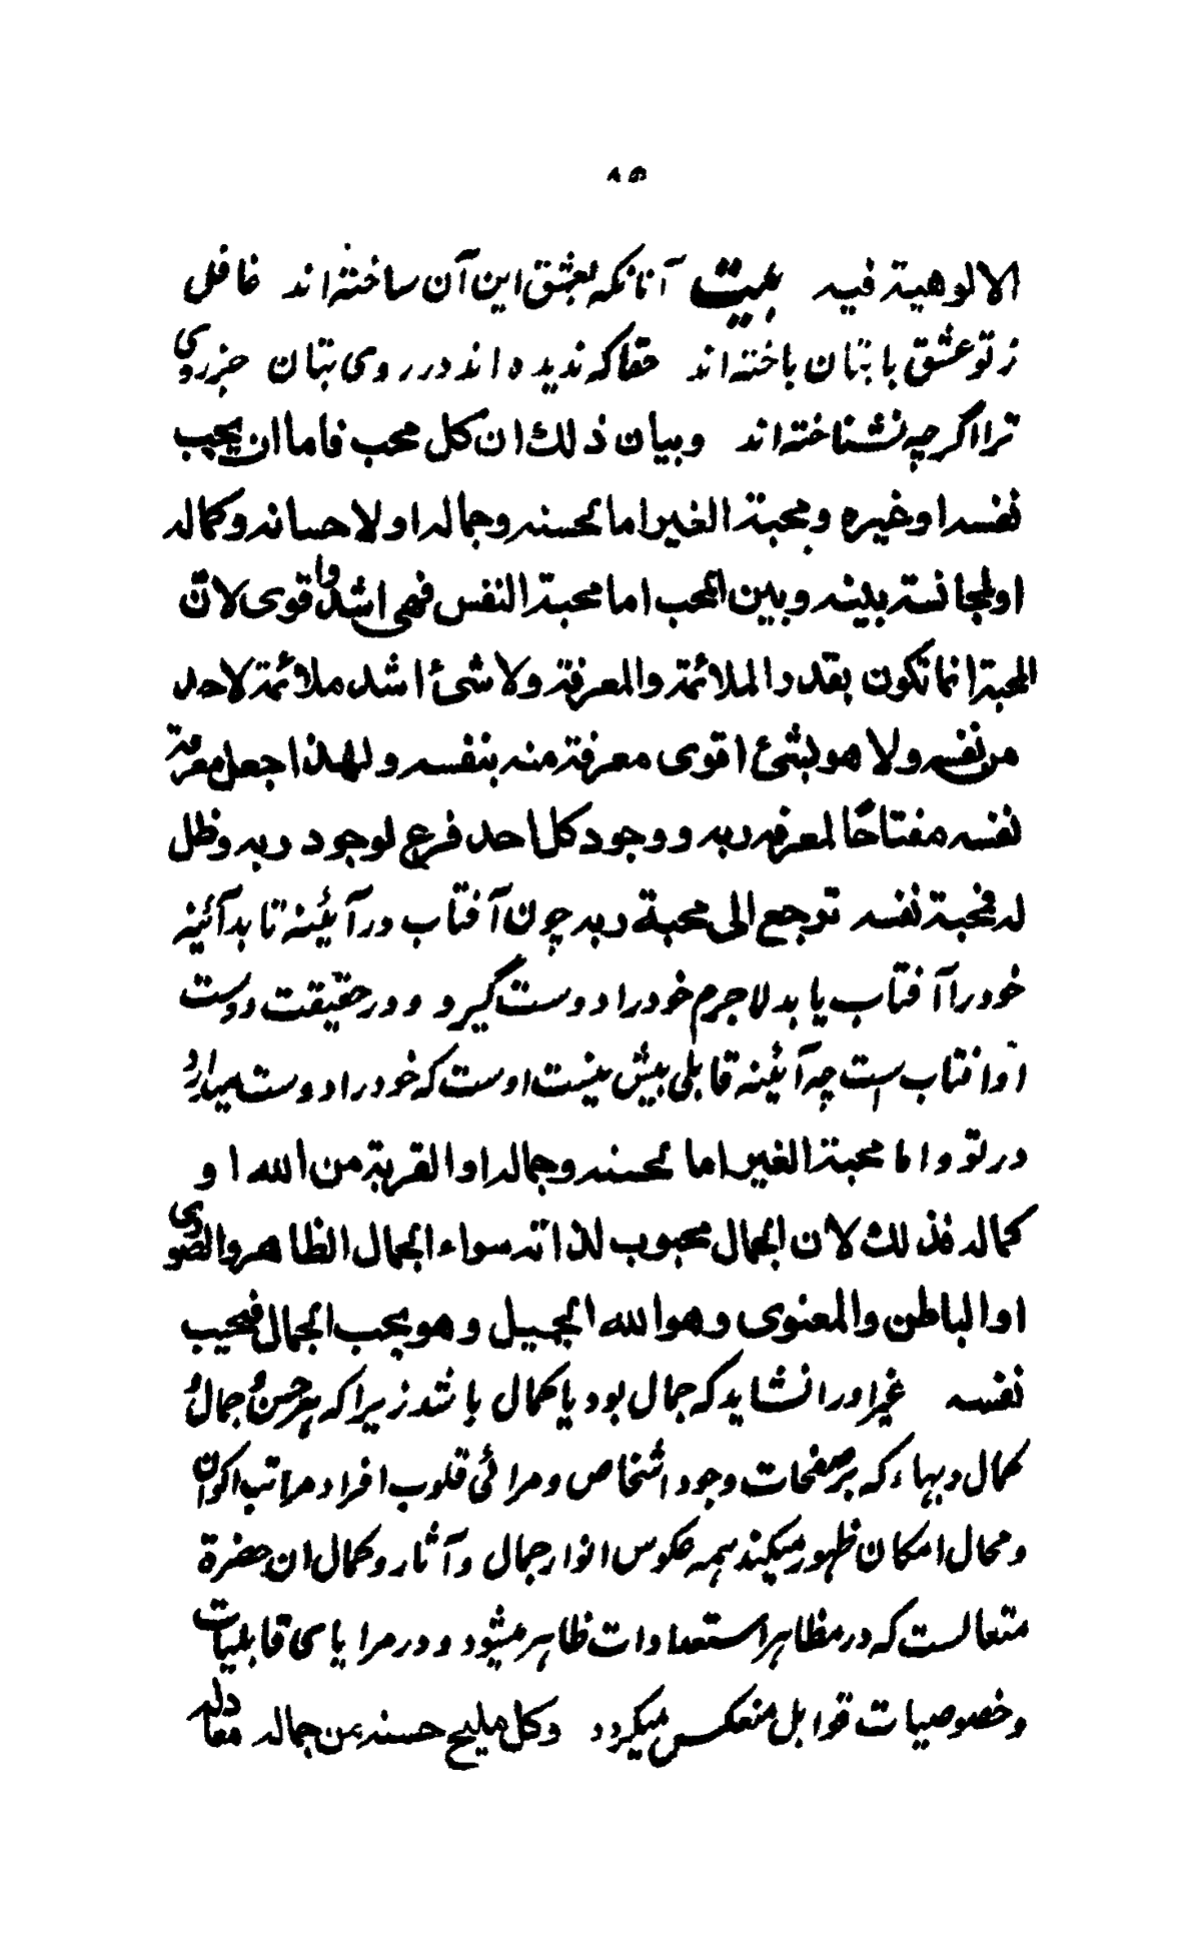 ٨٥
الالوهية فيه بيت آنانكه بعشق اين آن ساخته اند غافل
ز تو عشق با بتان باخته اند حقا كه نديده اند در روى بتان جز روى
ترا اگرچه نشناخته اند وبيان ذلك ان كل محب فاما ان يحب
نفسه او غيره ومحبة الغير اما لحسنه وجماله او لاحسانه وكماله
او لمجانسته بينه وبين المحب اما محبة النفس فهى اشد واقوى لانّ
المحبة انما تكون بقدر الملائمة والمعرفة ولا شئ اشد ملائمة لاحد
من نفسه ولا هو بشئ اقوى معرفة منه بنفسه ولهذا جعل معرفة
نفسه مفتاحًا لمعرفه ربه ووجود كل احد فرع لوجود ربه وظل
له فمحبة نفسه ترجع الى محبة ربه چون آفتاب در آئينه تابد آئينه
خود را آفتاب يابد لاجرم خود را دوست گيرو ودر حقيقت دوست
او افتاب ست چه آئينه قابلى بيش نيست اوست كه خود را دوست ميدارد
در تو واما محبة الغير اما لحسنه وجماله او القربة من الله او
كماله فذلك لان الجمال محبوب لذاته سواء الجمال الظاهر والصورى
او الباطن والمعنوى وهو الله الجميل وهو يحب الجمال فيحب
نفسه غير اورا نشايد كه جمال بود يا كمال باشد زيرا كه هر حسنُ جمالُ
كمال وبهاء كه بر صفحات وجود اشخاص ومرائى قلوب افراد مراتب اكوان
ومحال امكان ظهور ميكند همه عكوس انوار جمال وآثار وكمال ان حضرة
متعالست كه در مظاهر استعدادات ظاهر ميشود ودر مراياى قابليات
وخصوصيات قوابل منعكس ميگردد وكل مليح حسنه من جماله معادله